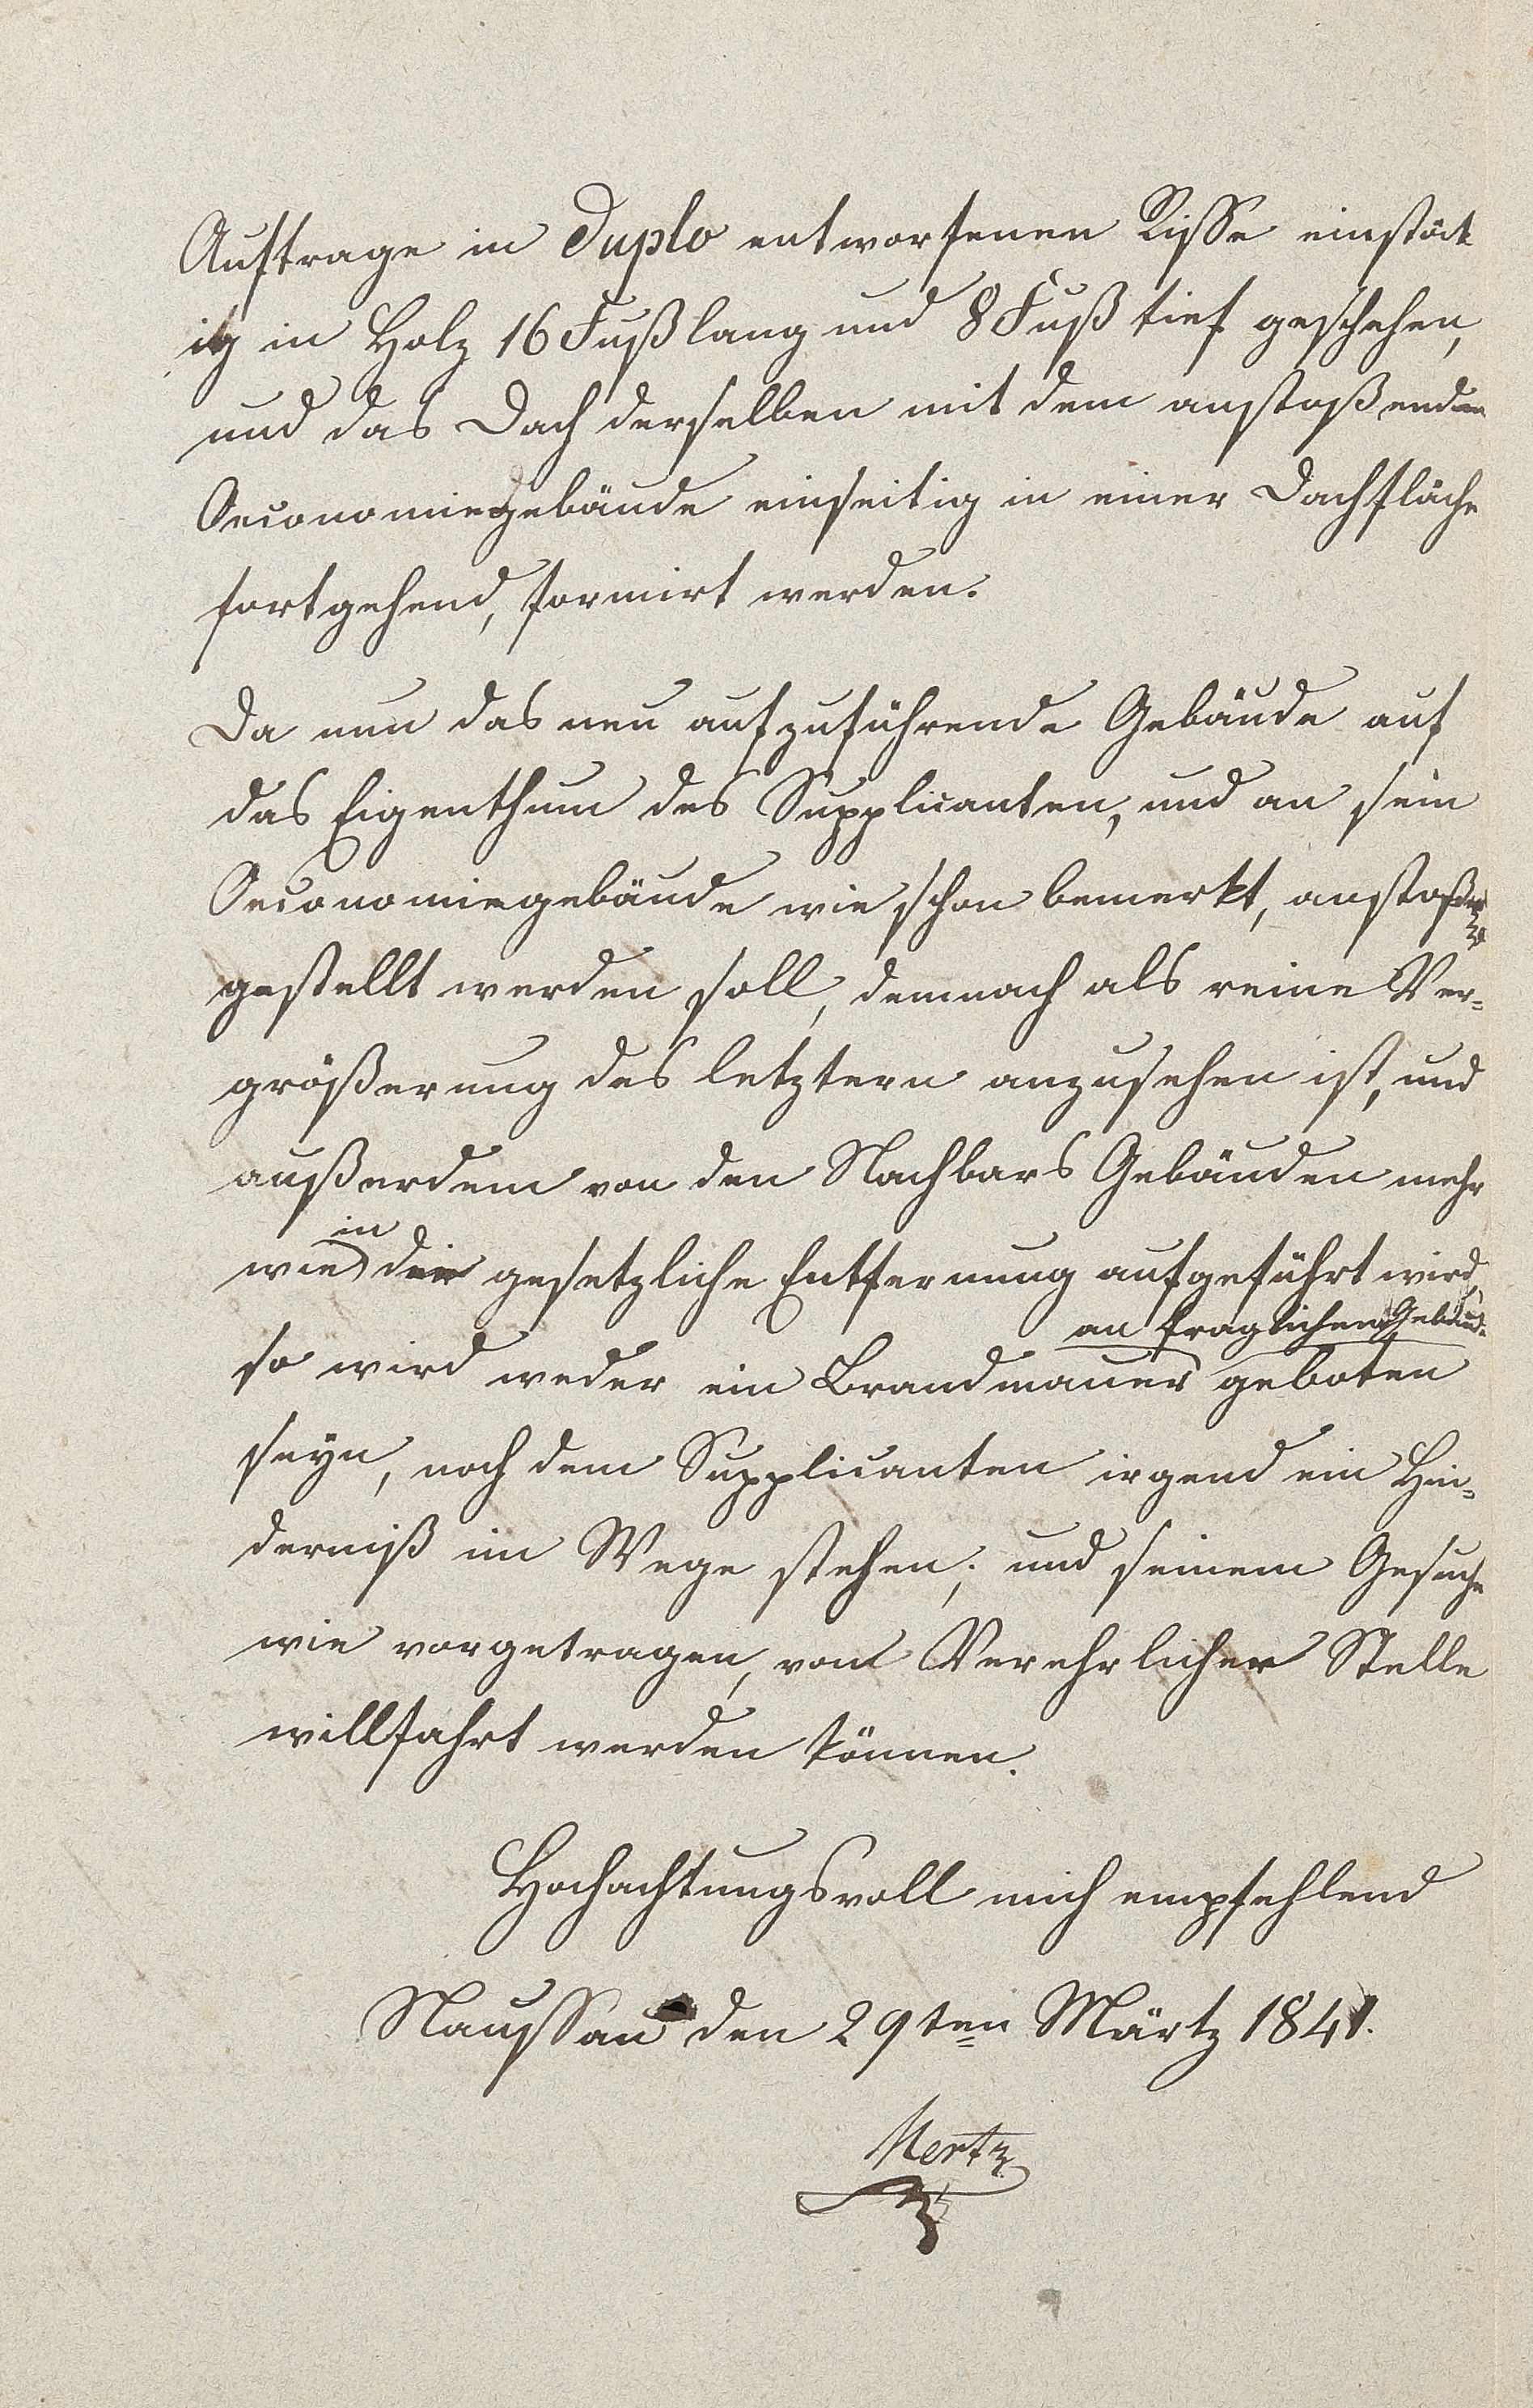 Auftrage in Duplo entworfenen Risse einstöck
ig in Holz 16 Fuß lang und 8 Fuß tief geschehen,
und das Dach derselben mit dem anstoßenden
Oeconomiegebäude einseitig in einer Dachfläche
fortgehend, formirt werden.
Da nun das neu aufzuführende Gebäude auf
das Eigenthum des Supplicanten, und an sein
Oeconomiegebäude wie schon bemerkt, anstoßend
gestellt werden soll, demnach als reine Ver-
größerung des letztern anzusehen ist, und
außerdem von den Nachbars Gebäuden mehr
in
wie die gesetzliche Entfernung aufgeführt wird,
an fraglichen Gebäude
so wird weder ein Brandmauer geboten
seyn, noch dem Supplicanten irgend ein Hin-
derniß im Wege stehen; und seinem Gesuche
wie vorgetragen, von Verehrlicher Stelle
willfahrt werden können.
Hochachtungsvoll mich empfehlend
Naussau den 29ten Märtz 1841.
Mertz